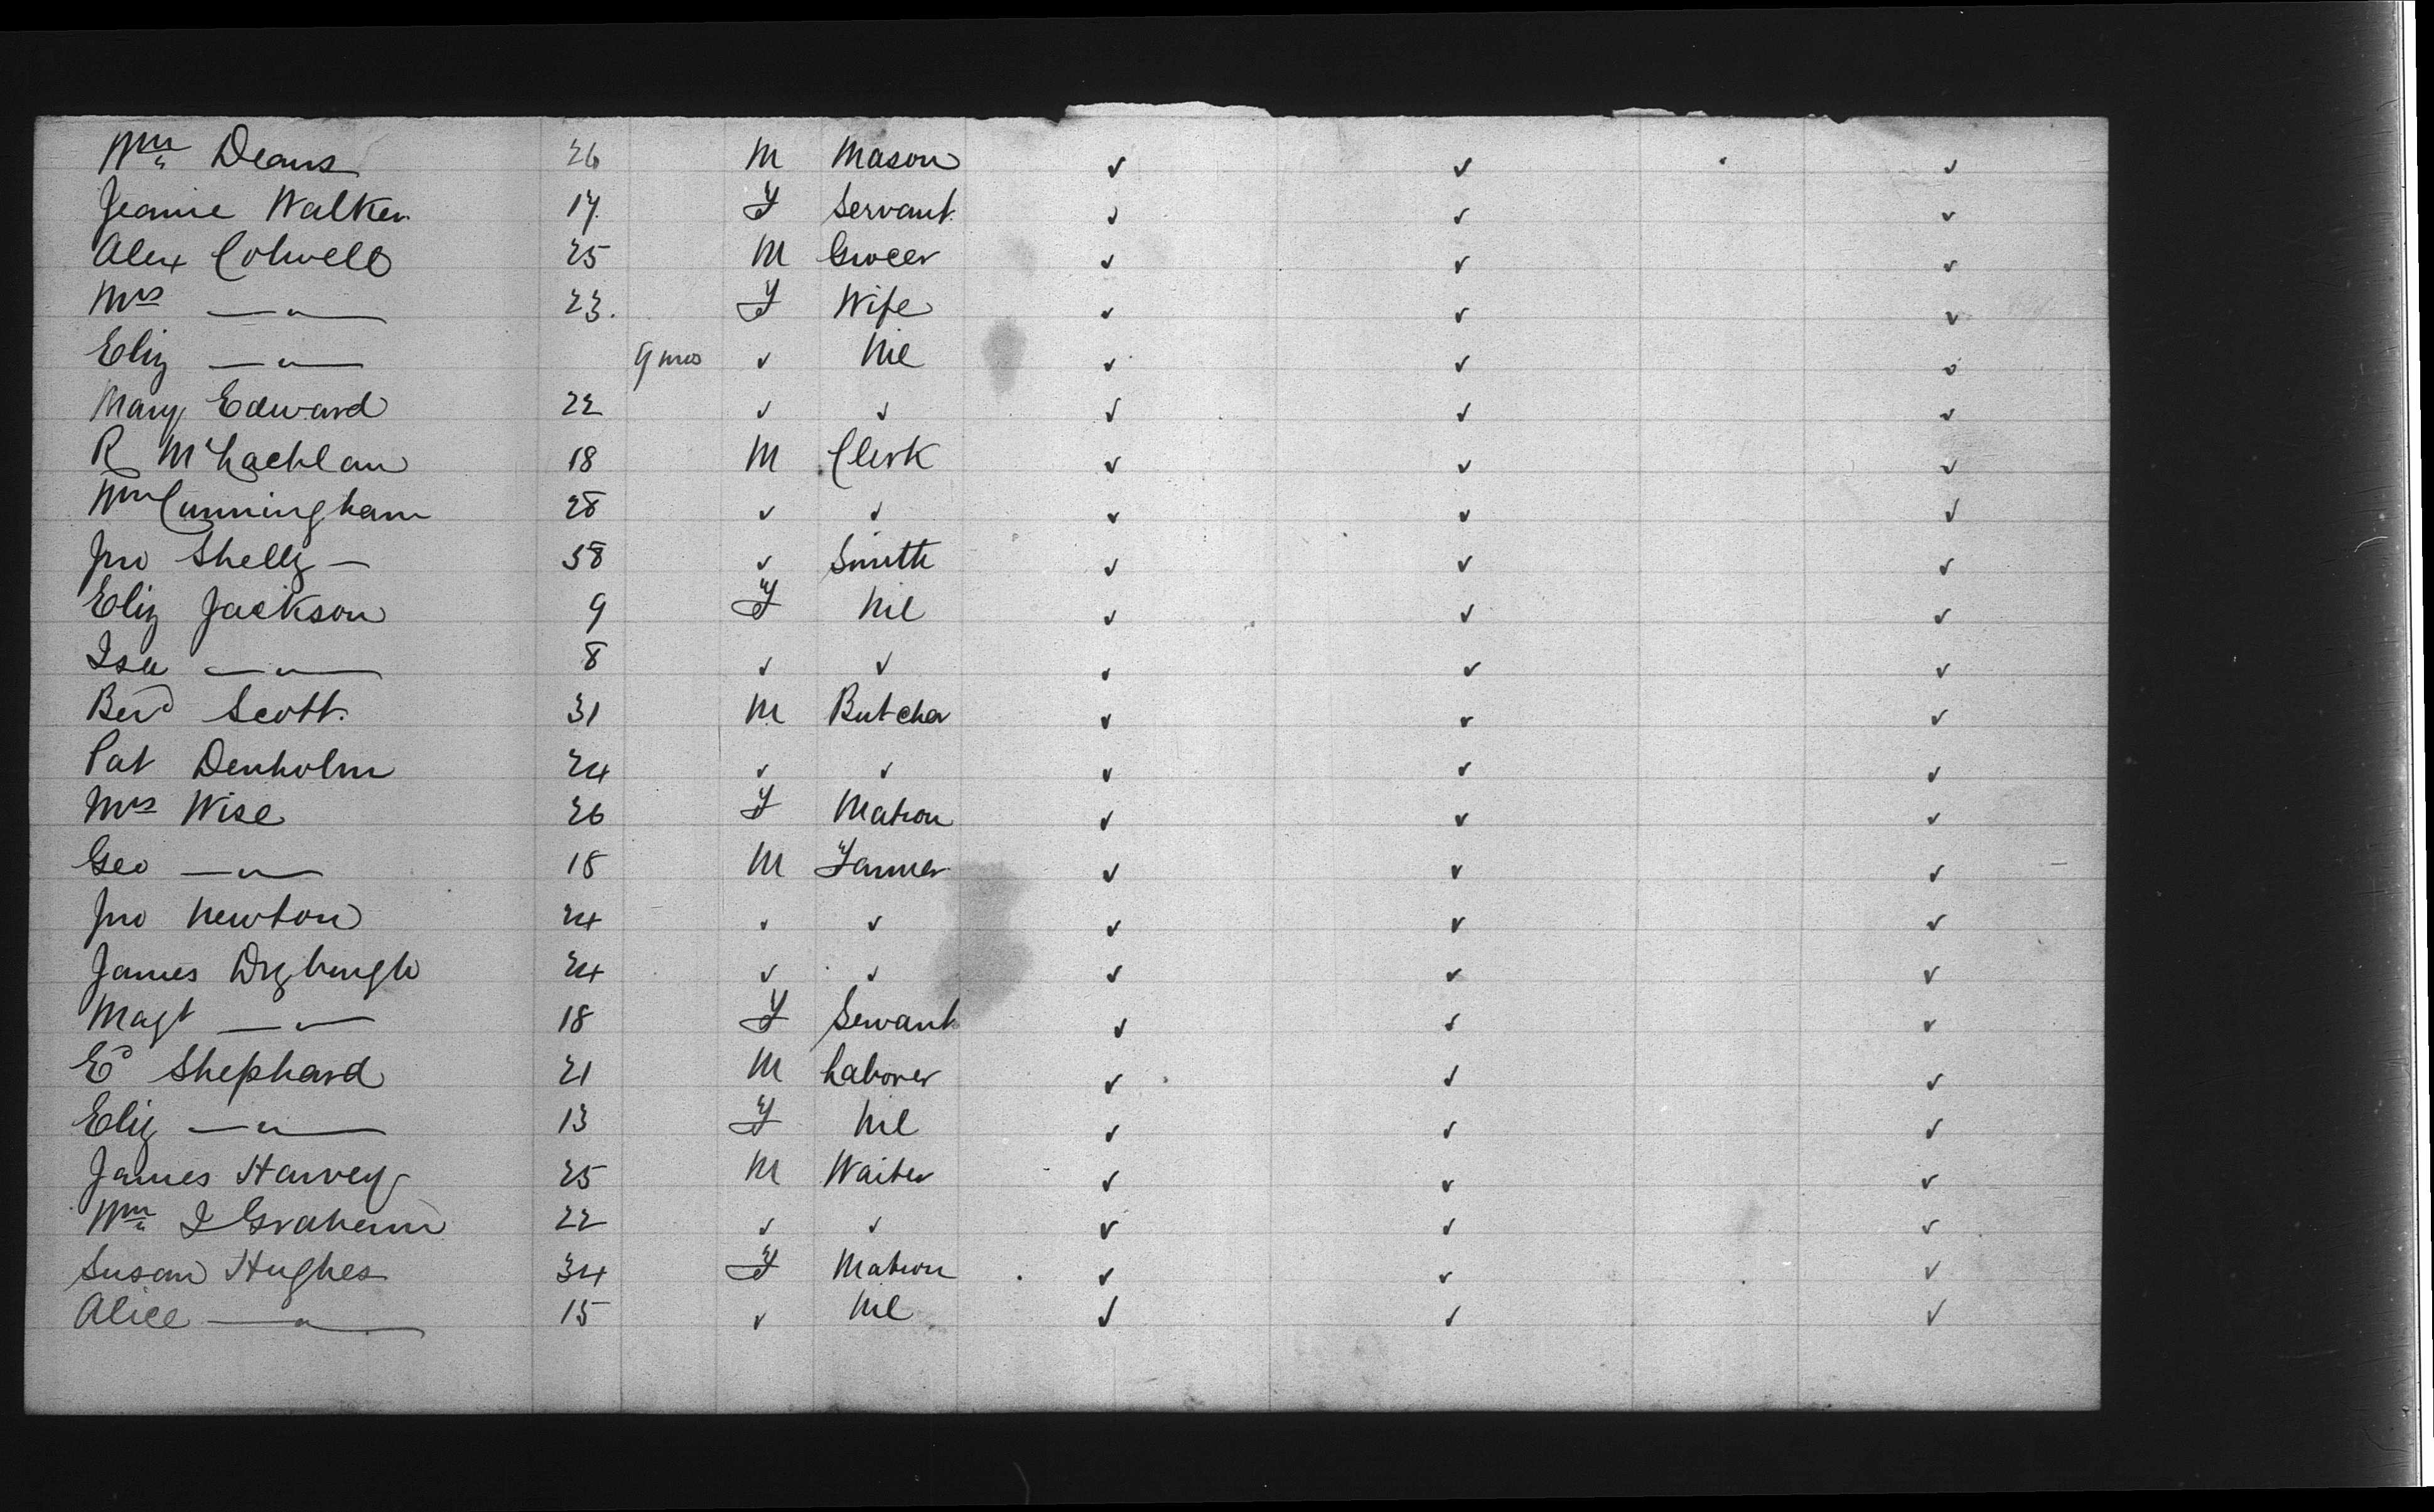 Wm Deans 26 M Mason ✓ ✓ ✓
Jeanie Walker 17 F Servant ✓ ✓ ✓
Alex Colwell 25 M Grocer ✓ ✓ ✓
Mrs —"— 23. F Wife ✓ ✓ ✓
Eliz —"— 9 mos ✓ Nil ✓ ✓ ✓
Mary Edward 22 ✓ ✓ ✓ ✓ ✓
R McLachlan 18 M Clerk ✓ ✓ ✓
Wm Cunningham 28 ✓ ✓ ✓ ✓ ✓
Jno Shelly — 38 ✓ Smith ✓ ✓ ✓
Eliz Jackson 9 F Nil ✓ ✓ ✓
Isa —"— 8 ✓ ✓ ✓ ✓ ✓
Bend Scott. 31 M Butcher ✓ ✓ ✓
Pat Denholm 24 ✓ ✓ ✓ ✓ ✓
Mrs Wise 26 F Matron ✓ ✓ ✓
Geo —"— 18 M Farmer ✓ ✓ ✓
Jno Newton 24 ✓ ✓ ✓ ✓ ✓
James Dryburgh 24 ✓ ✓ ✓ ✓ ✓
Magt —"— 18 F Servant ✓ ✓ ✓
Ed Shephard 21 M Laborer ✓ ✓ ✓
Eliz —"— 13 F Nil ✓ ✓ ✓
James Harvey 25 M Waiter ✓ ✓ ✓
Wm I Graham 22 ✓ ✓ ✓ ✓ ✓
Susan Hughes 34 F Matron ✓ ✓ ✓
Alice —"— 15 ✓ Nil ✓ ✓ ✓